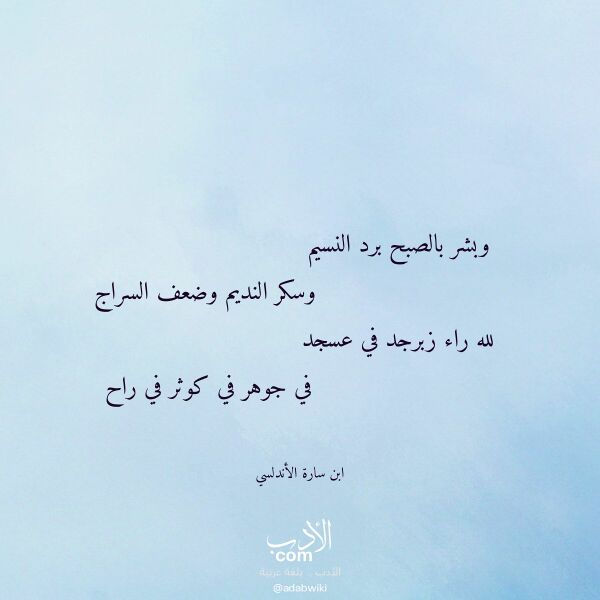 وبشر بالصبح برد النسيم
وسكر النديم وضعف السراج
لله راء زبرجد في عسجد
في جوهر في كوثر في راح
ابن سارة الأندلسي
الأدب
com
الأدب .. بلغة عربية
@adabwiki